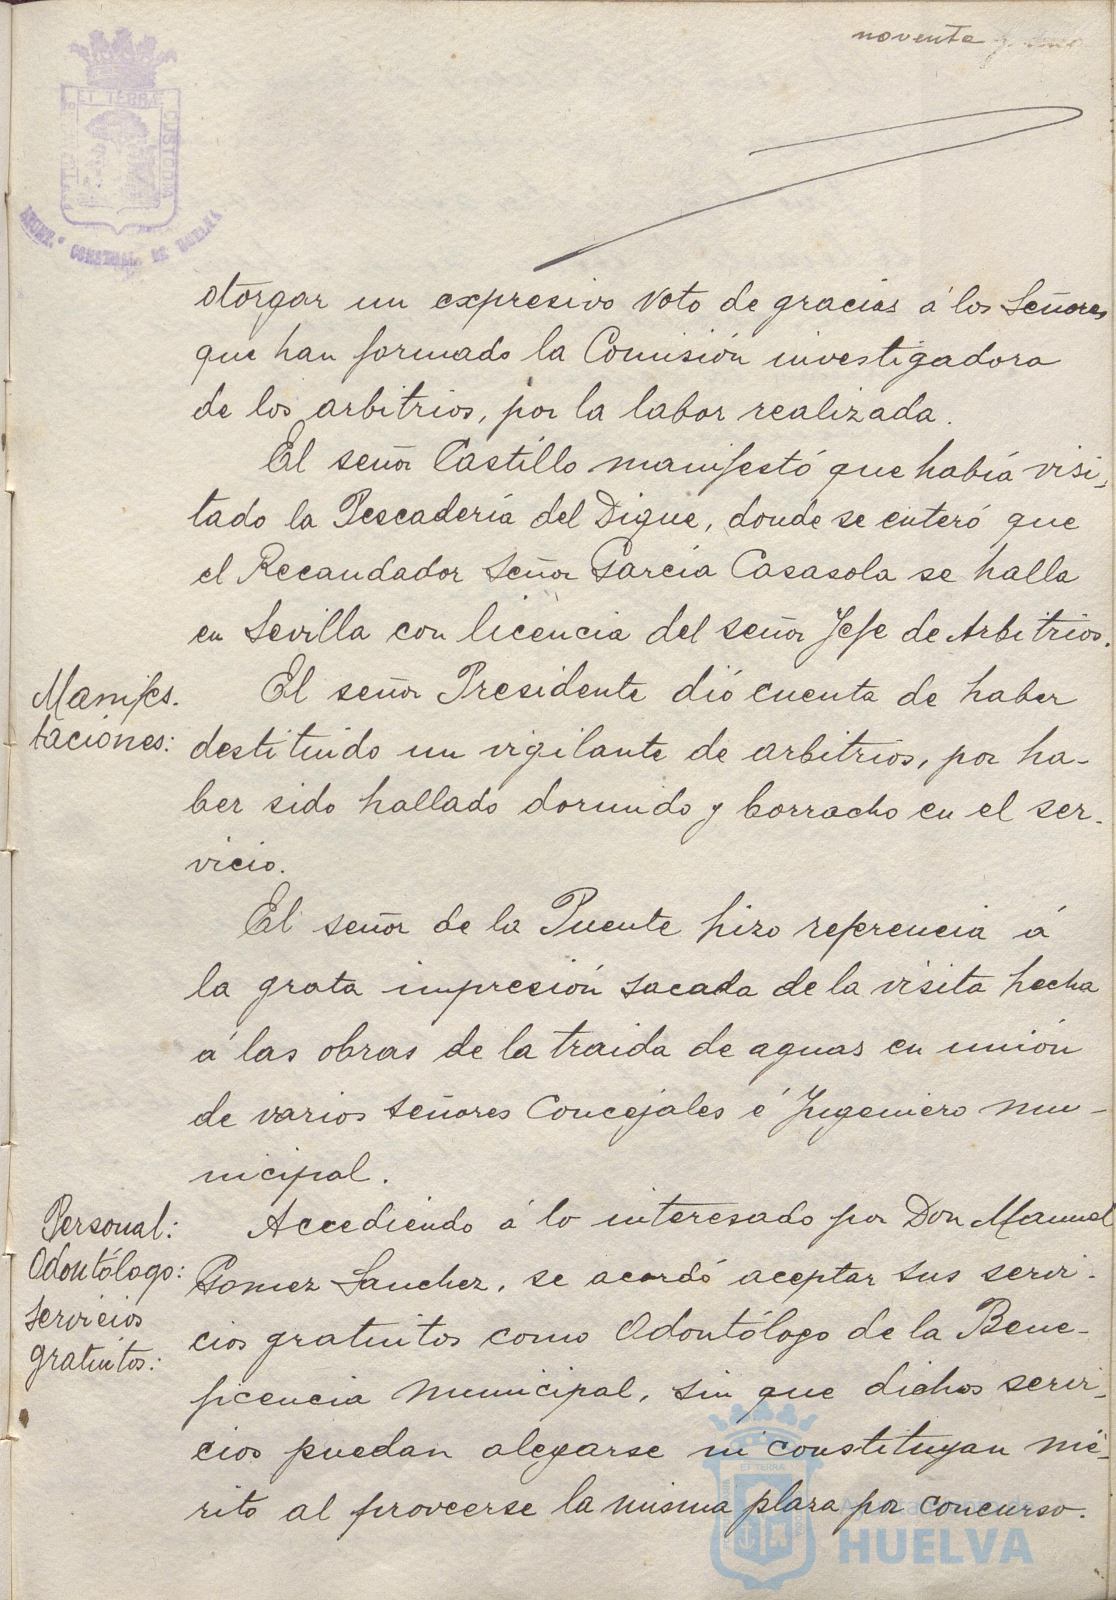 noventa y uno
ET TERRÆ
CUSTODIA
AYUNT.º CONSTNAL. DE HUELVA
otorgar un expresivo voto de gracias á los Señores
que han formado la Comisión investigadora
de los arbitrios, por la labor realizada.
El señor Castillo manifestó que había visi-
tado la Pescadería del Dique, donde se enteró que
el Recaudador Señor García Casasola se halla
en Sevilla con licencia del señor Jefe de Arbitrios.
Manifes-
taciones:
El señor Presidente dió cuenta de haber
destituido un vigilante de arbitrios, por ha-
ber sido hallado dormido y borracho en el ser-
vicio.
El señor de la Puente hizo referencia á
la grata impresión sacada de la visita hecha
á las obras de la traida de aguas en unión
de varios señores Concejales é Ingeniero mu-
nicipal.
Personal:
Odontólogo:
servicios
gratuitos:
Accediendo á lo interesado por Don Manuel
Gomez Sanchez, se acordó aceptar sus servi-
cios gratuitos como Odontólogo de la Bene-
ficencia Municipal, sin que dichos servi-
cios puedan alegarse ni constituyan mé-
rito al proveerse la misma plaza por concurso.
HUELVA